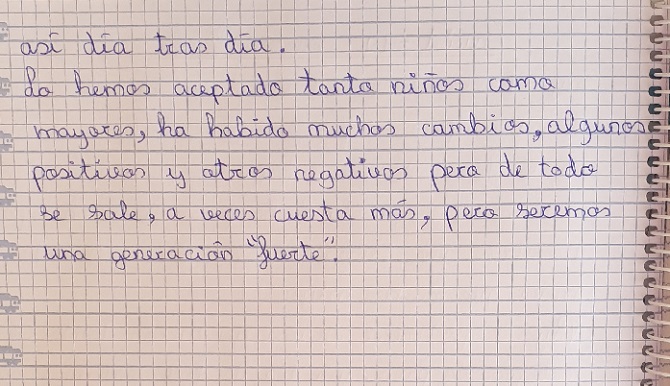 así día tras día.
Lo hemos aceptado tanto niños como
mayores, ha habido muchos cambios, algunos
positivos y otros negativos pero de todo
se sale, a veces cuesta más, pero seremos
una generación "fuerte".